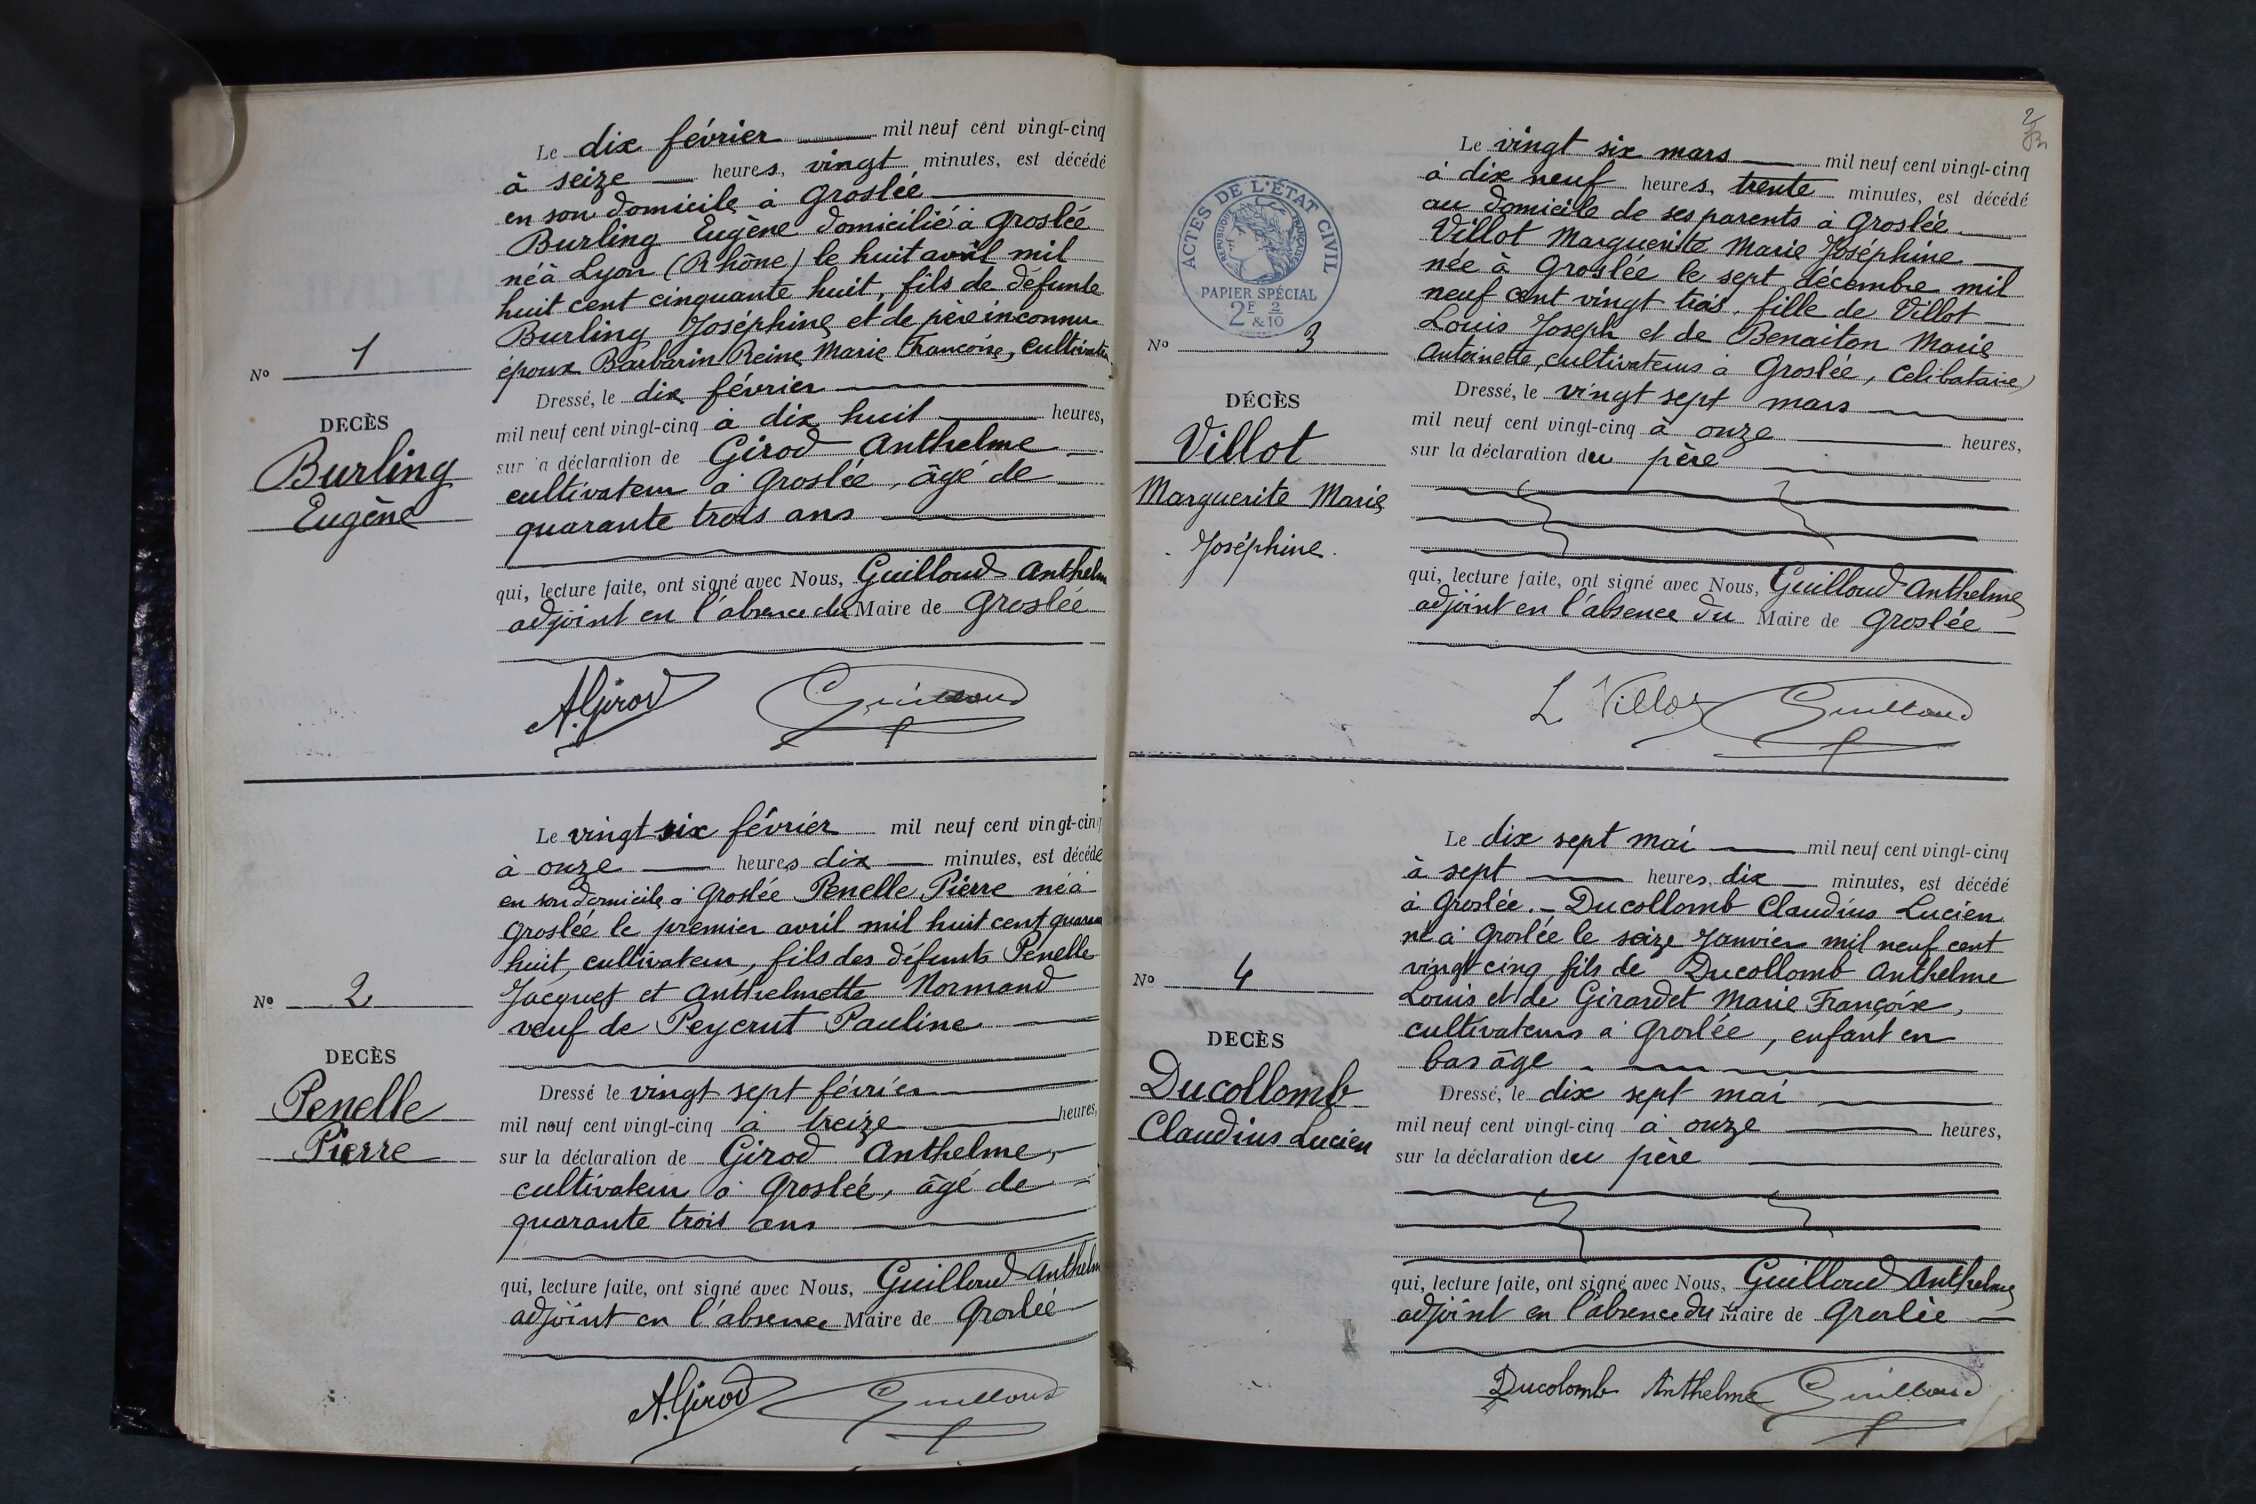 Le dix février mil neuf cent vingt-cinq
à seize heures, vingt minutes, est décédé
en son domicile à Groslée
Burling Eugène domicilié à Groslée
né à Lyon (Rhône) le huit avril mil
huit cent cinquante huit, fils de défunte
Burling Joséphine et de père inconnu
époux Barbarin Reine Marie Françoise, cultivateur
Nº 1
Dressé, le dix février
mil neuf cent vingt-cinq à dix huit heures,
DECÈS
Burling
Eugène
sur la déclaration de Girod Anthelme
cultivateur à Groslée, âgé de
quarante trois ans
qui, lecture faite, ont signé avec Nous, Guilloud Anthelm
adjoint en l'absence du Maire de Groslée
A. Girod Guilloud
Le vingt six février mil neuf cent vingt-cinq
à onze heures dix minutes, est décédé
en son domicile à Groslée Penelle Pierre né à
Groslée le premier avril mil huit cent quaran
huit, cultivateur, fils des défunts Penelle
Jacques et Anthelmette Normand
veuf de Peycrut Pauline
Nº 2
DECÈS
Penelle
Pierre
Dressé le vingt sept février
mil neuf cent vingt-cinq à treize heures,
sur la déclaration de Girod Anthelme,
cultivateur à Groslée, âgé de
quarante trois ans
qui, lecture faite, ont signé avec Nous, Guilloud Anthelm
adjoint en l'absence Maire de Groslée
A. Girod Guilloud
2
ACTES DE L'ÉTAT CIVIL
RÉPUBLIQUE FRANÇAISE
PAPIER SPÉCIAL
2F 2
& 10
Le vingt six mars mil neuf cent vingt-cinq
à dix neuf heures, trente minutes, est décédé
au domicile de ses parents à Groslée
Villot Marguerite Marie Joséphine
née à Groslée le sept décembre mil
neuf cent vingt trois, fille de Villot
Louis Joseph et de Benaiton Marie
Antoinette, cultivateurs à Groslée, Celibataire
Nº 3
DÉCÈS
Villot
Marguerite Marie
Joséphine.
Dressé, le vingt sept mars
mil neuf cent vingt-cinq à onze heures,
sur la déclaration du père
qui, lecture faite, ont signé avec Nous, Guilloud Anthelme
adjoint en l'absence du Maire de Groslée
L Villot Guilloud
Le dix sept mai mil neuf cent vingt-cinq
à sept heures, dix minutes, est décédé
à Groslée. - Ducollomb Claudius Lucien
né à Groslée le seize Janvier mil neuf cent
vingt cinq fils de Ducollomb Anthelme
Louis et de Girardet Marie Françoise,
cultivateurs à Groslée, enfant en
bas âge
Nº 4
DECÈS
Ducollomb
Claudius Lucien
Dressé, le dix sept mai
mil neuf cent vingt-cinq à onze heures,
sur la déclaration du père
qui, lecture faite, ont signé avec Nous, Guilloud Anthelme
adjoint en l'absence du Maire de Groslée
Ducolomb Anthelme Guilloud